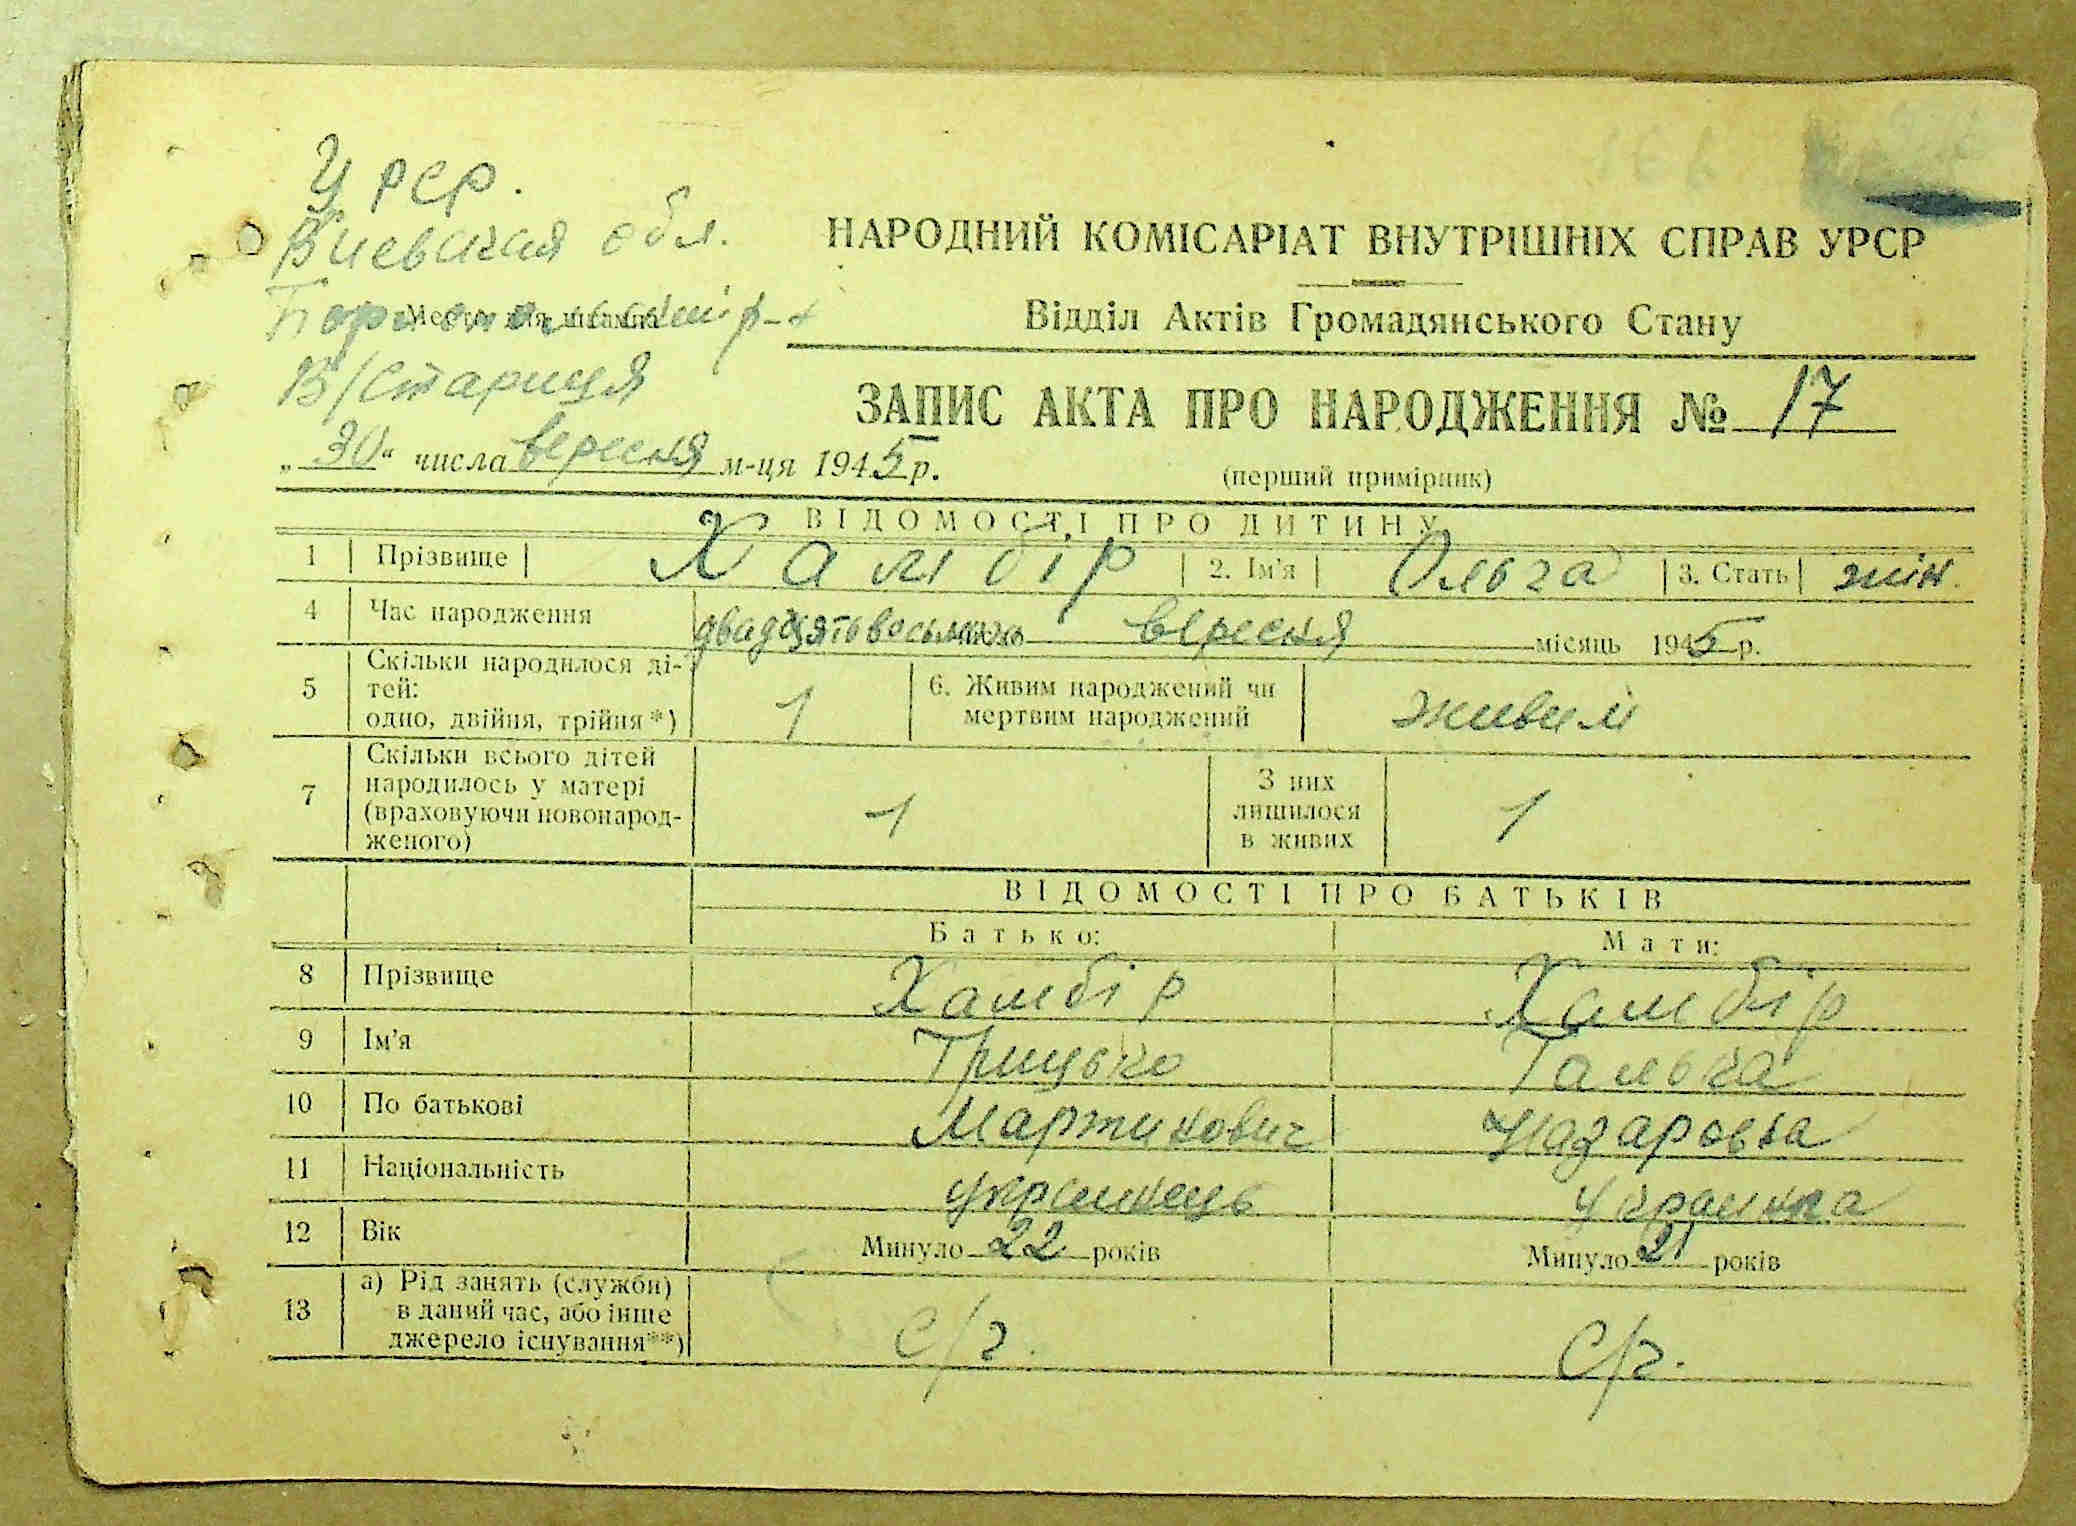 УРСР.
Киевская обл.
Место для штампа
р-н
В/Стариця
„30“ числа вересня м-ця 1945 р.
НАРОДНИЙ КОМІСАРІАТ ВНУТРІШНІХ СПРАВ УРСР
Відділ Актів Громадянського Стану
ЗАПИС АКТА ПРО НАРОДЖЕННЯ № 17
(перший примірник)
ВІДОМОСТІ ПРО ДИТИНУ
1 Прізвище Хамбір 2. Ім'я Ольга 3. Стать жін.
4 Час народження двадцять восьмого вересня місяць 1945 р.
5 Скільки народилося ді-
тей:
одно, двійня, трійня*) 1 6. Живим народжений чи
мертвим народжений живим
7 Скільки всього дітей
народилось у матері
(враховуючи новонарод-
женого) 1 З них
лишилося
в живих 1
ВІДОМОСТІ ПРО БАТЬКІВ
Батько: Мати:
8 Прізвище Хамбір Хамбір
9 Ім'я Грицько Галька
10 По батькові Мартинович Назаровна
11 Національність украинець украинка
12 Вік Минуло 22 років Минуло 21 років
13 а) Рід занять (служби)
в даний час, або інше
джерело існування**) с/г. с/г.